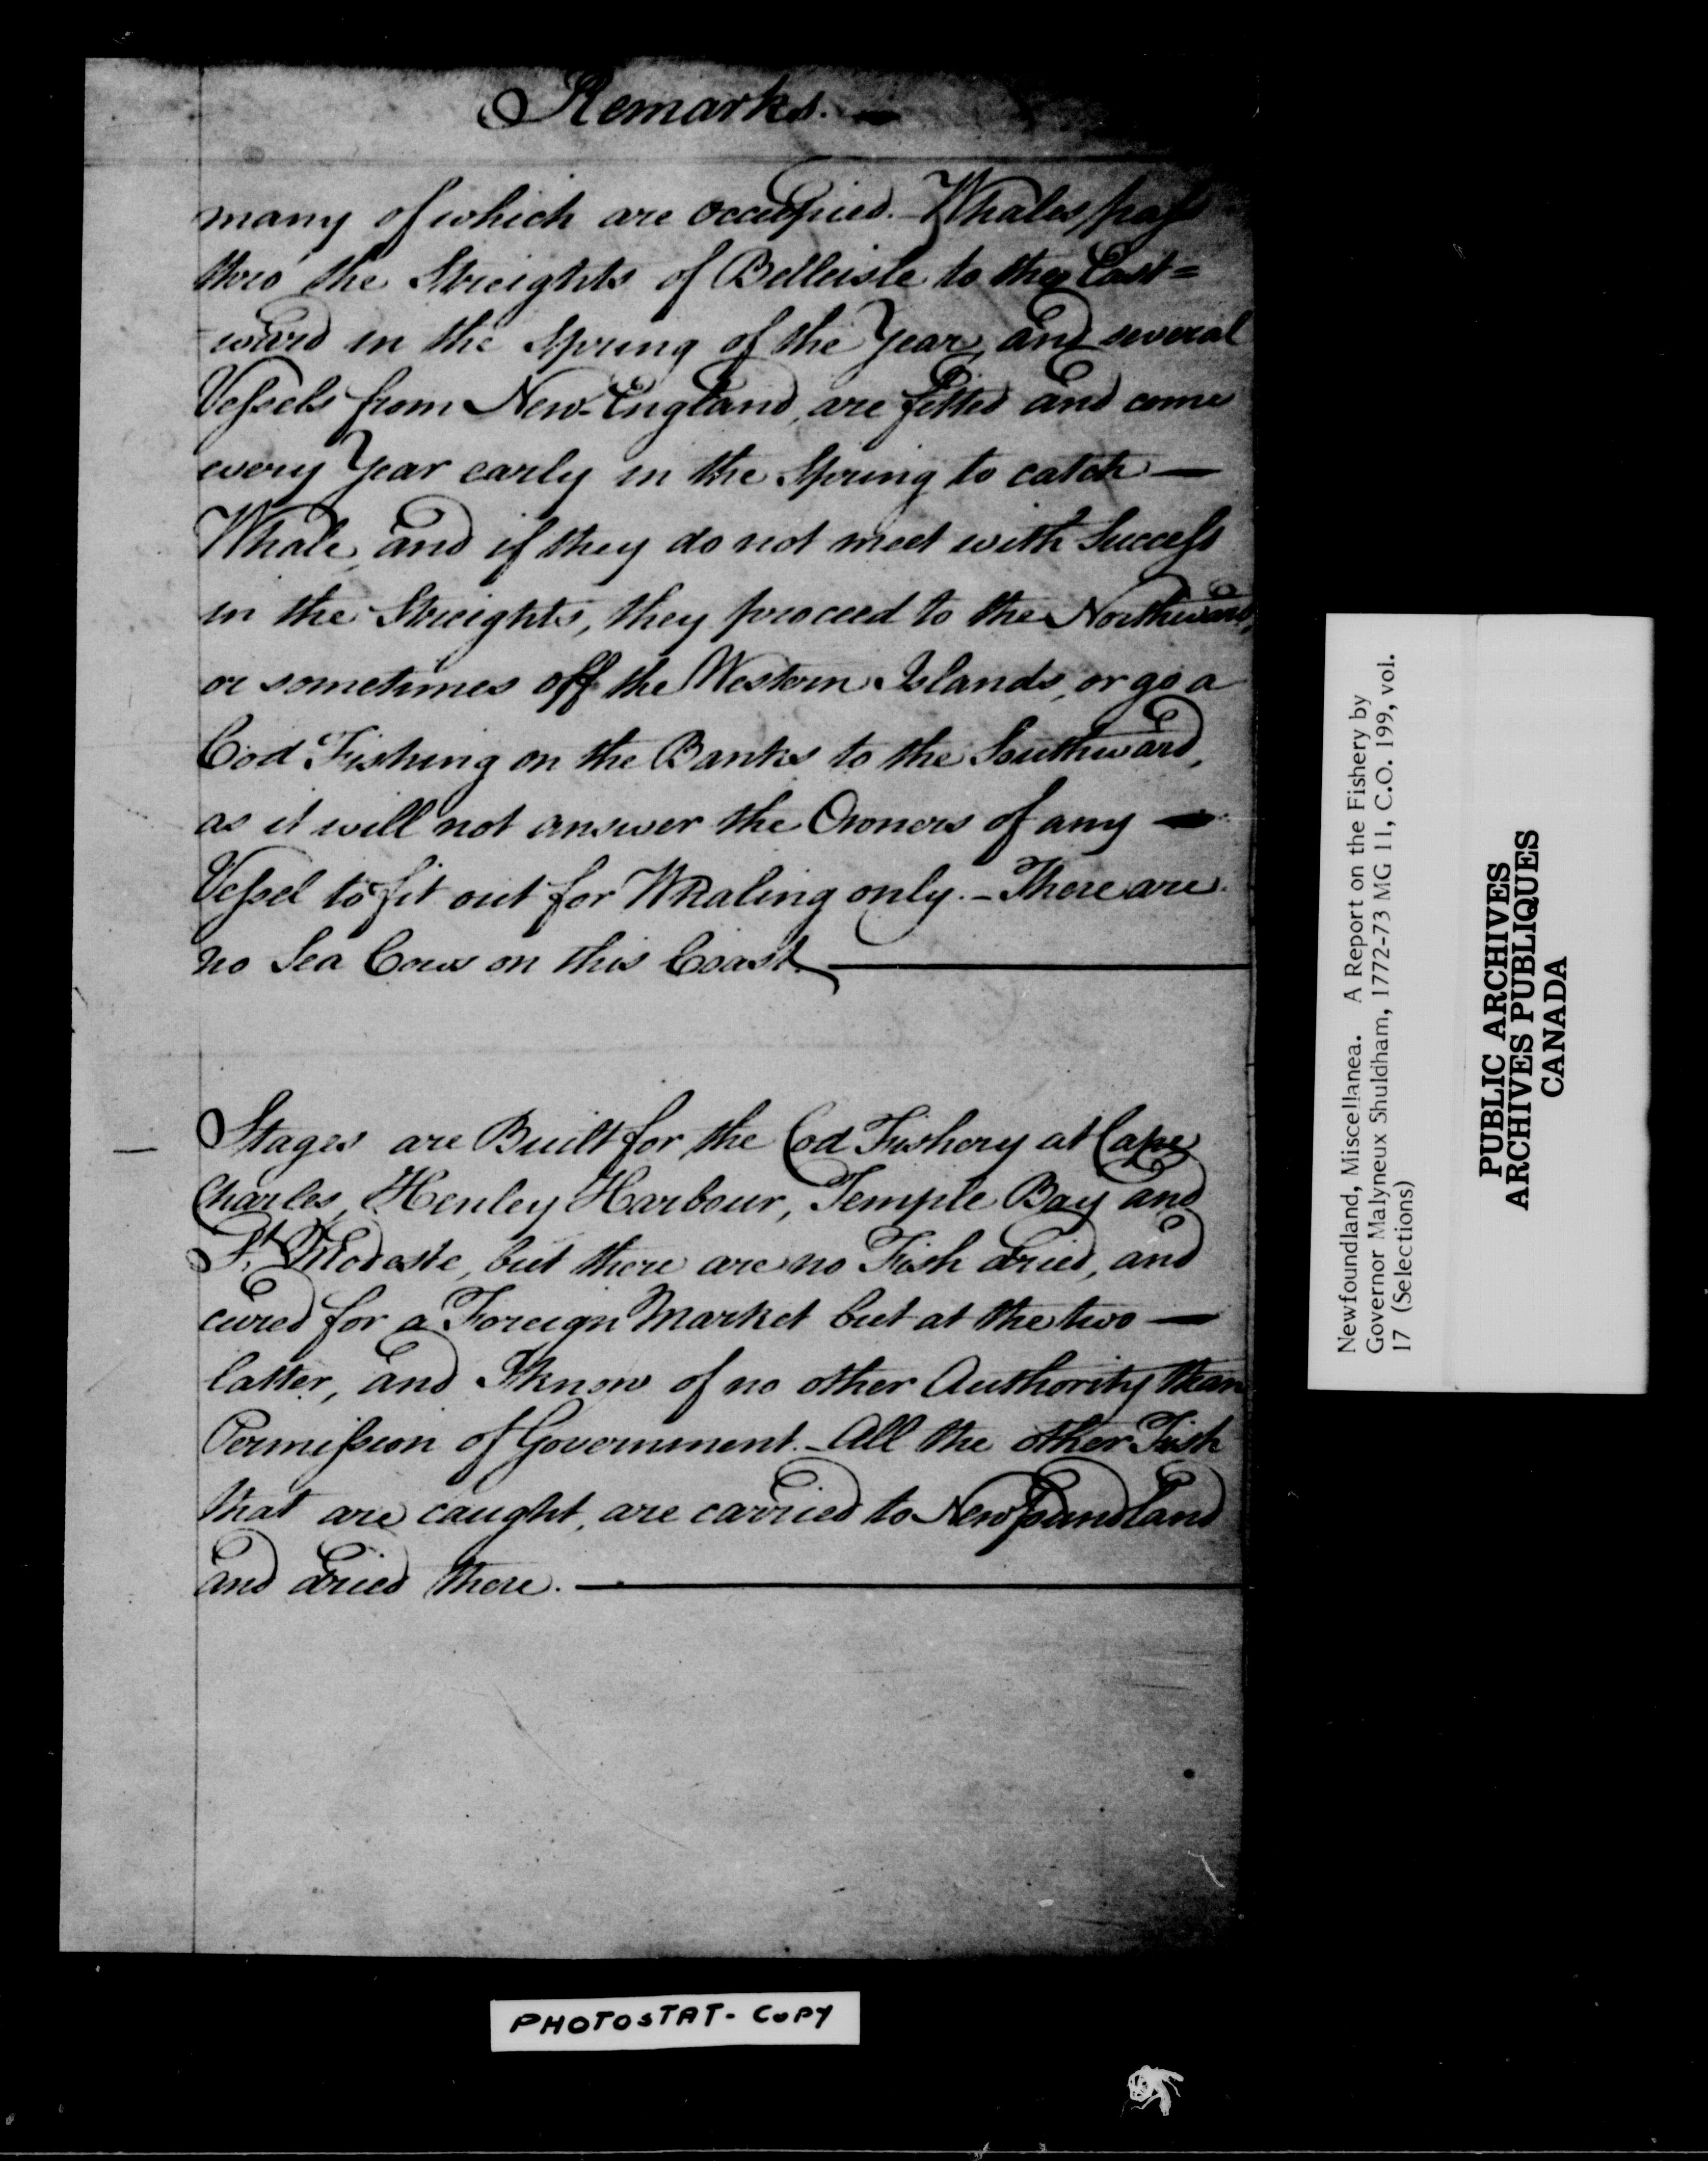 Remarks. —
many of which are occupied. – Whales pass
thro' the Streights of Belleisle to the East=
=ward in the Spring of the Year, and several
Vessels from New-England, are fitted and come
every Year early in the Spring to catch —
Whale, and if they do not meet with Success
in the Streights, they proceed to the Northward,
or sometimes off the Western Islands, or go a
Cod Fishing on the Banks to the Southward,
as it will not answer the Owners of any —
Vessel to fit out for Whaling only. – There are
no Sea Cows on this Coast. —
— Stages are Built for the Cod Fishery at Cape
Charles, Henley Harbour, Temple Bay and
St. Modeste, but there are no Fish dried, and
cured for a Foreign Market but at the two —
latter, and I know of no other Authority than
Permission of Government. – All the other Fish
that are caught, are carried to Newfoundland
and dried there. —
PHOTOSTAT - COPY
Newfoundland, Miscellanea. A Report on the Fishery by
Governor Malyneux Shuldham, 1772-73 MG 11, C.O. 199, vol.
17 (Selections)
PUBLIC ARCHIVES
ARCHIVES PUBLIQUES
CANADA